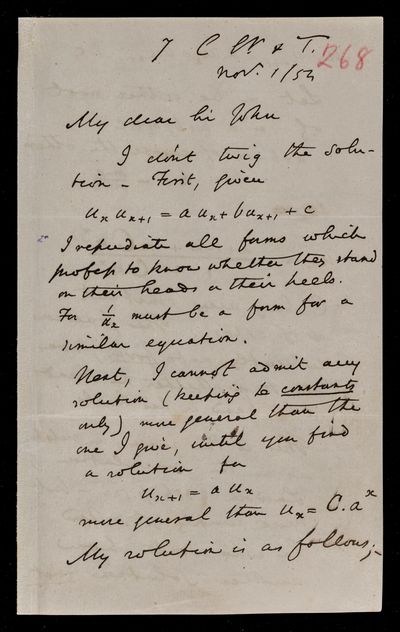 7 C St & T.
268
Nov. 1/54
My dear Sir John
I don't twig the solu-
tion – First, given
uₓ uₓ₊₁ = a uₓ + b uₓ₊₁ + c
I repudiate all forms which
profess to know whether they stand
on their heads or their heels.
For 1/uₓ must be a form for a
similar equation.
Next, I cannot admit any
solution (keeping to constants
only) more general than the
one I give, until you find
a solution for
uₓ₊₁ = a uₓ
more general than uₓ = C.aˣ
My solution is as follows;–